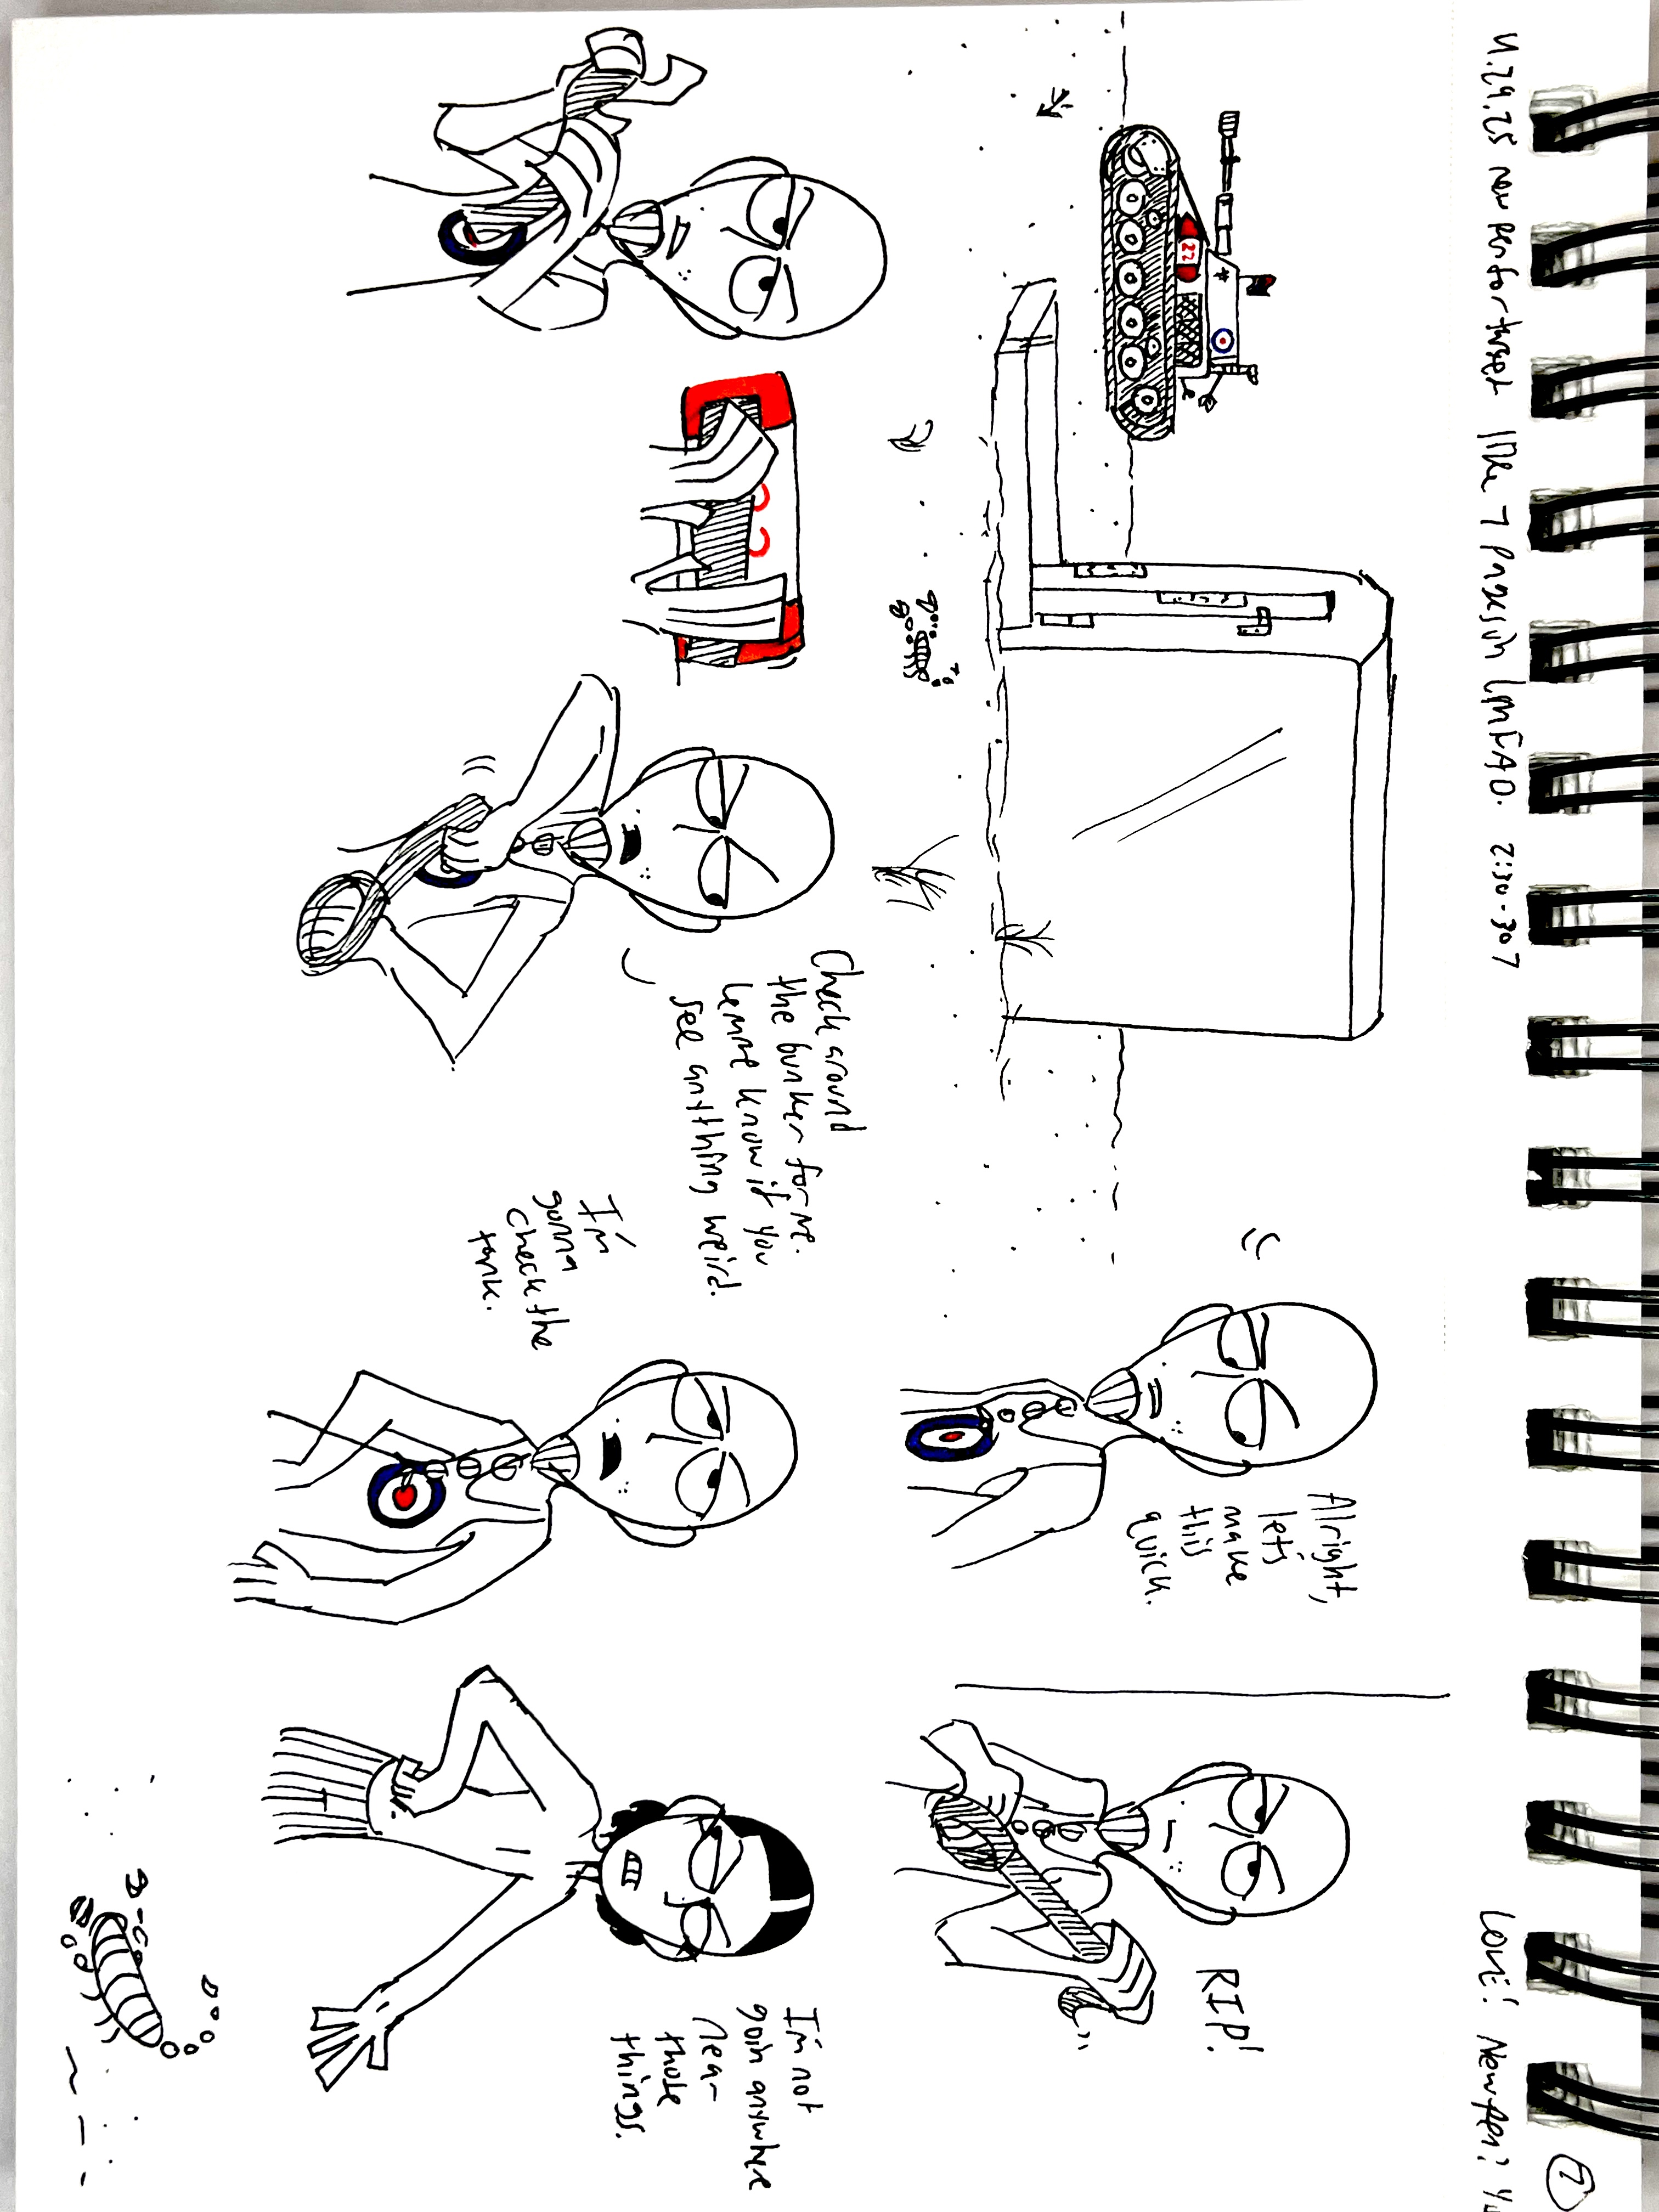 4.29.25 new pen for target like 7 pages in LMFAO. 2:30-307
LOVE! New pen?
7
22
Alright,
let's
make
this
quick.
RIP!
22
Check around
the bunker for me.
Lemme know if you
see anything weird.
I'm
gonna
check the
tank.
I'm not
goin anywhere
near
those
things.